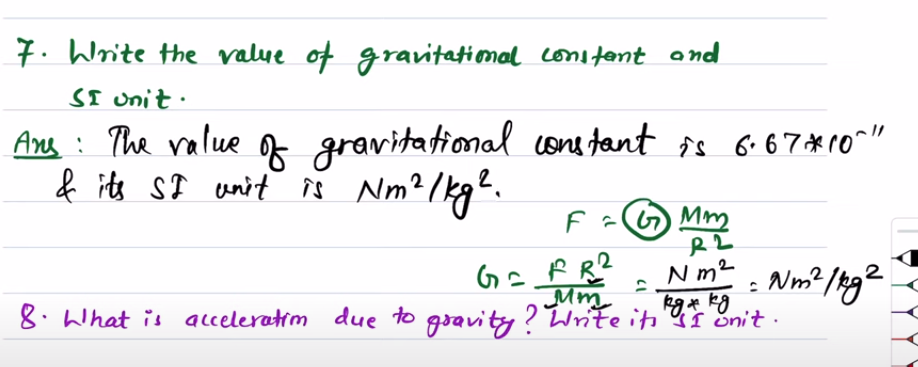 7. Write the value of gravitational constant and
SI unit.
Ans : The value of gravitational constant is 6.67*10⁻¹¹
& its SI unit is Nm²/kg².
F = G Mm/R²
G = FR²/Mm = Nm²/kg*kg = Nm²/kg²
8. What is acceleration due to gravity? Write its SI unit.